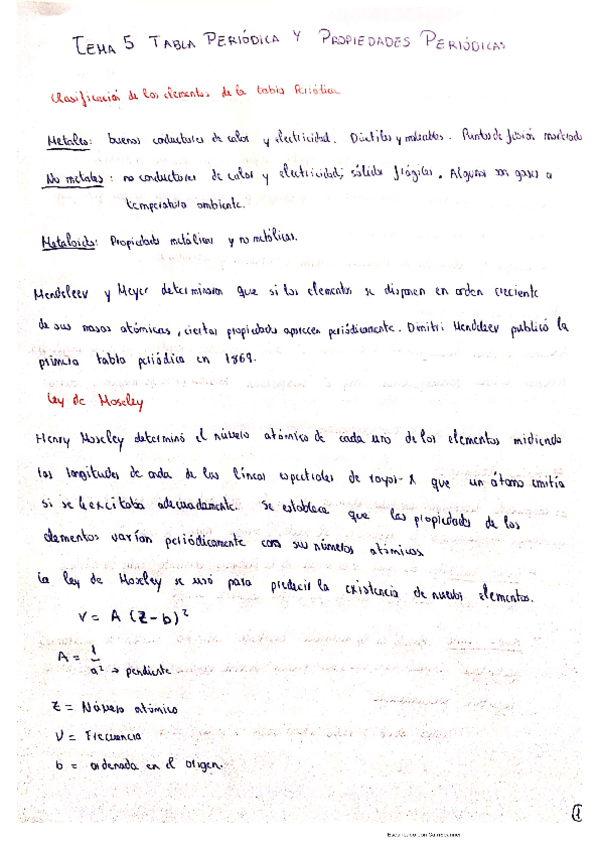 TEMA 5 TABLA PERIÓDICA Y PROPIEDADES PERIÓDICAS
Clasificación de los elementos de la tabla Periódica
Metales: buenos conductores de calor y electricidad. Dúctiles y maleables. Puntos de fusión moderado
No metales: no conductores de calor y electricidad; sólidos frágiles. Algunos son gases a
temperatura ambiente.
Metaloides: Propiedades metálicas y no metálicas.
Mendeleev y Meyer determinaron que si los elementos se disponen en orden creciente
de sus masas atómicas, ciertas propiedades aparecen periódicamente. Dimitri Mendeleev publicó la
primera tabla periódica en 1869.
Ley de Moseley
Henry Moseley determinó el número atómico de cada uno de los elementos midiendo
las longitudes de onda de las líneas espectrales de rayos-X que un átomo emitía
si se le excitaba adecuadamente. Se establece que las propiedades de los
elementos varían periódicamente con sus números atómicos
La ley de Moseley se usó para predecir la existencia de nuevos elementos.
ν = A (Z-b)²
A = 1/a² → pendiente
Z = Número atómico
ν = Frecuencia
b = ordenada en el origen.
1
Escaneado con CamScanner